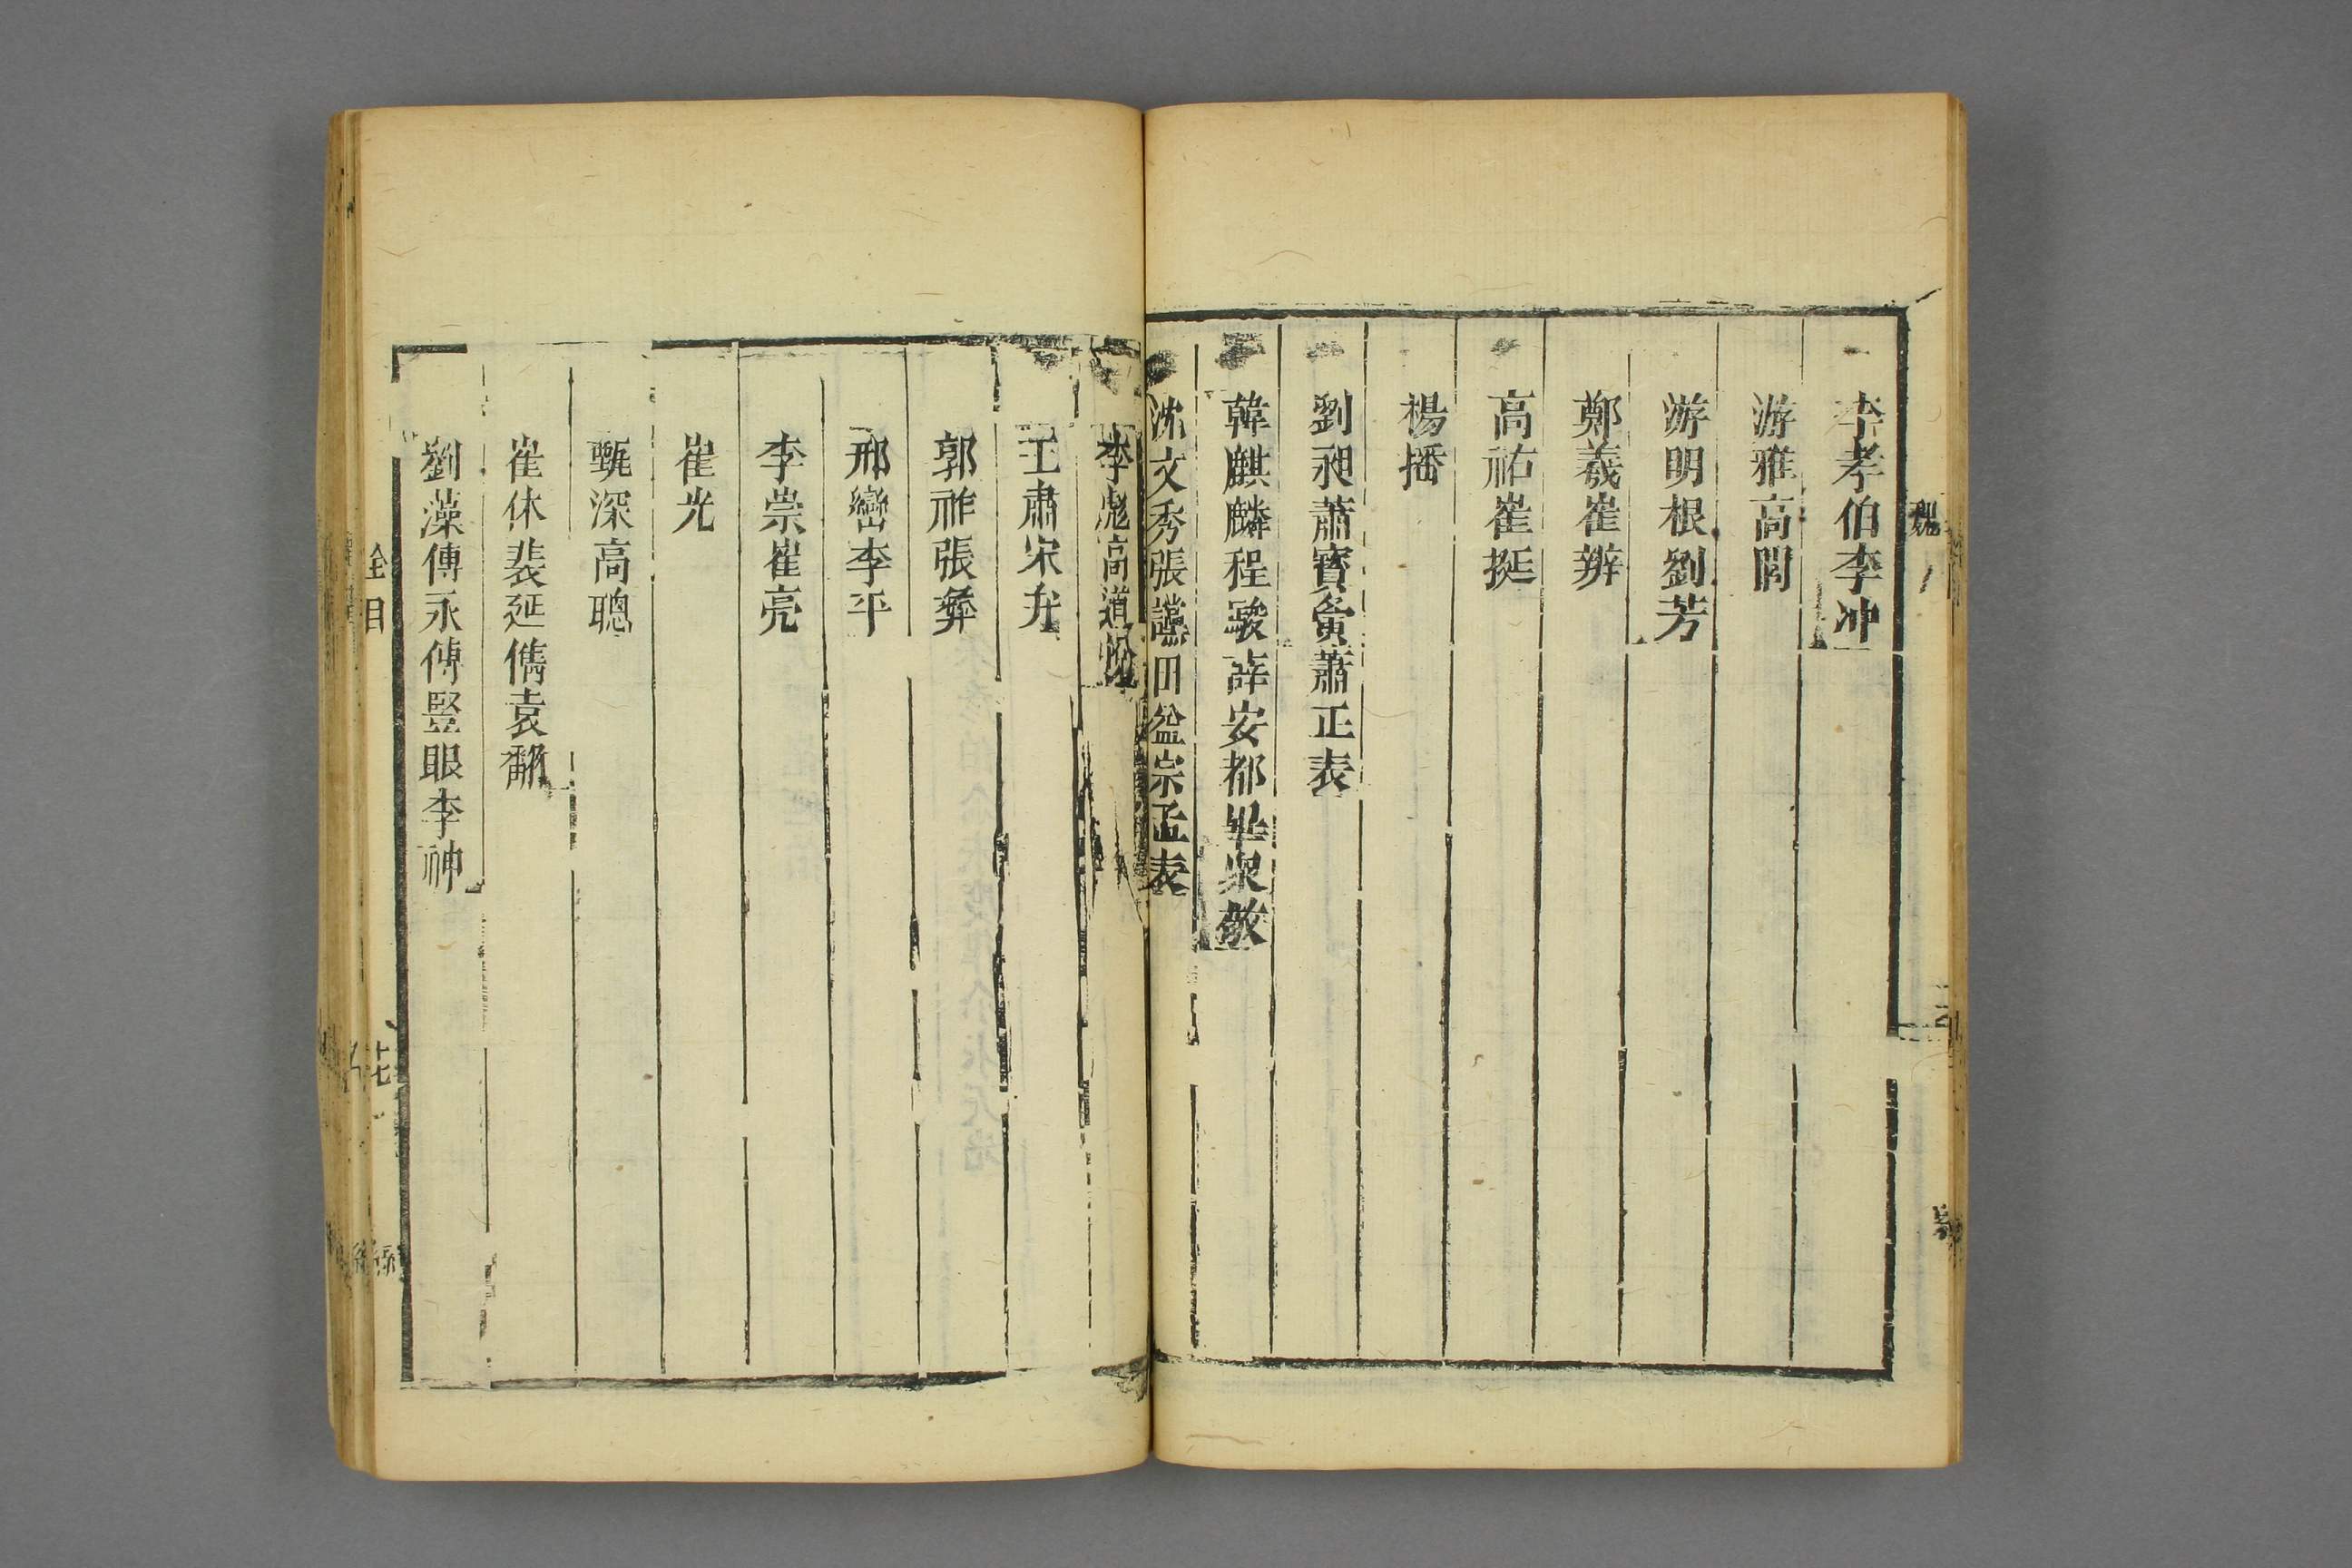 李孝伯李冲
游雅高閭
游明根劉芳
鄭羲崔辨
高祐崔挺
楊播
劉昶蕭寶夤蕭正表
韓麒麟程駿薛安都畢衆敬
沈文秀張讜田益宗孟表
李彪高道悅
王肅宋弁
郭祚張彝
邢巒李平
李崇崔亮
崔光
甄深高聰
崔休裴延儁袁翻
劉藻傅永傅豎眼李神
魏
全目